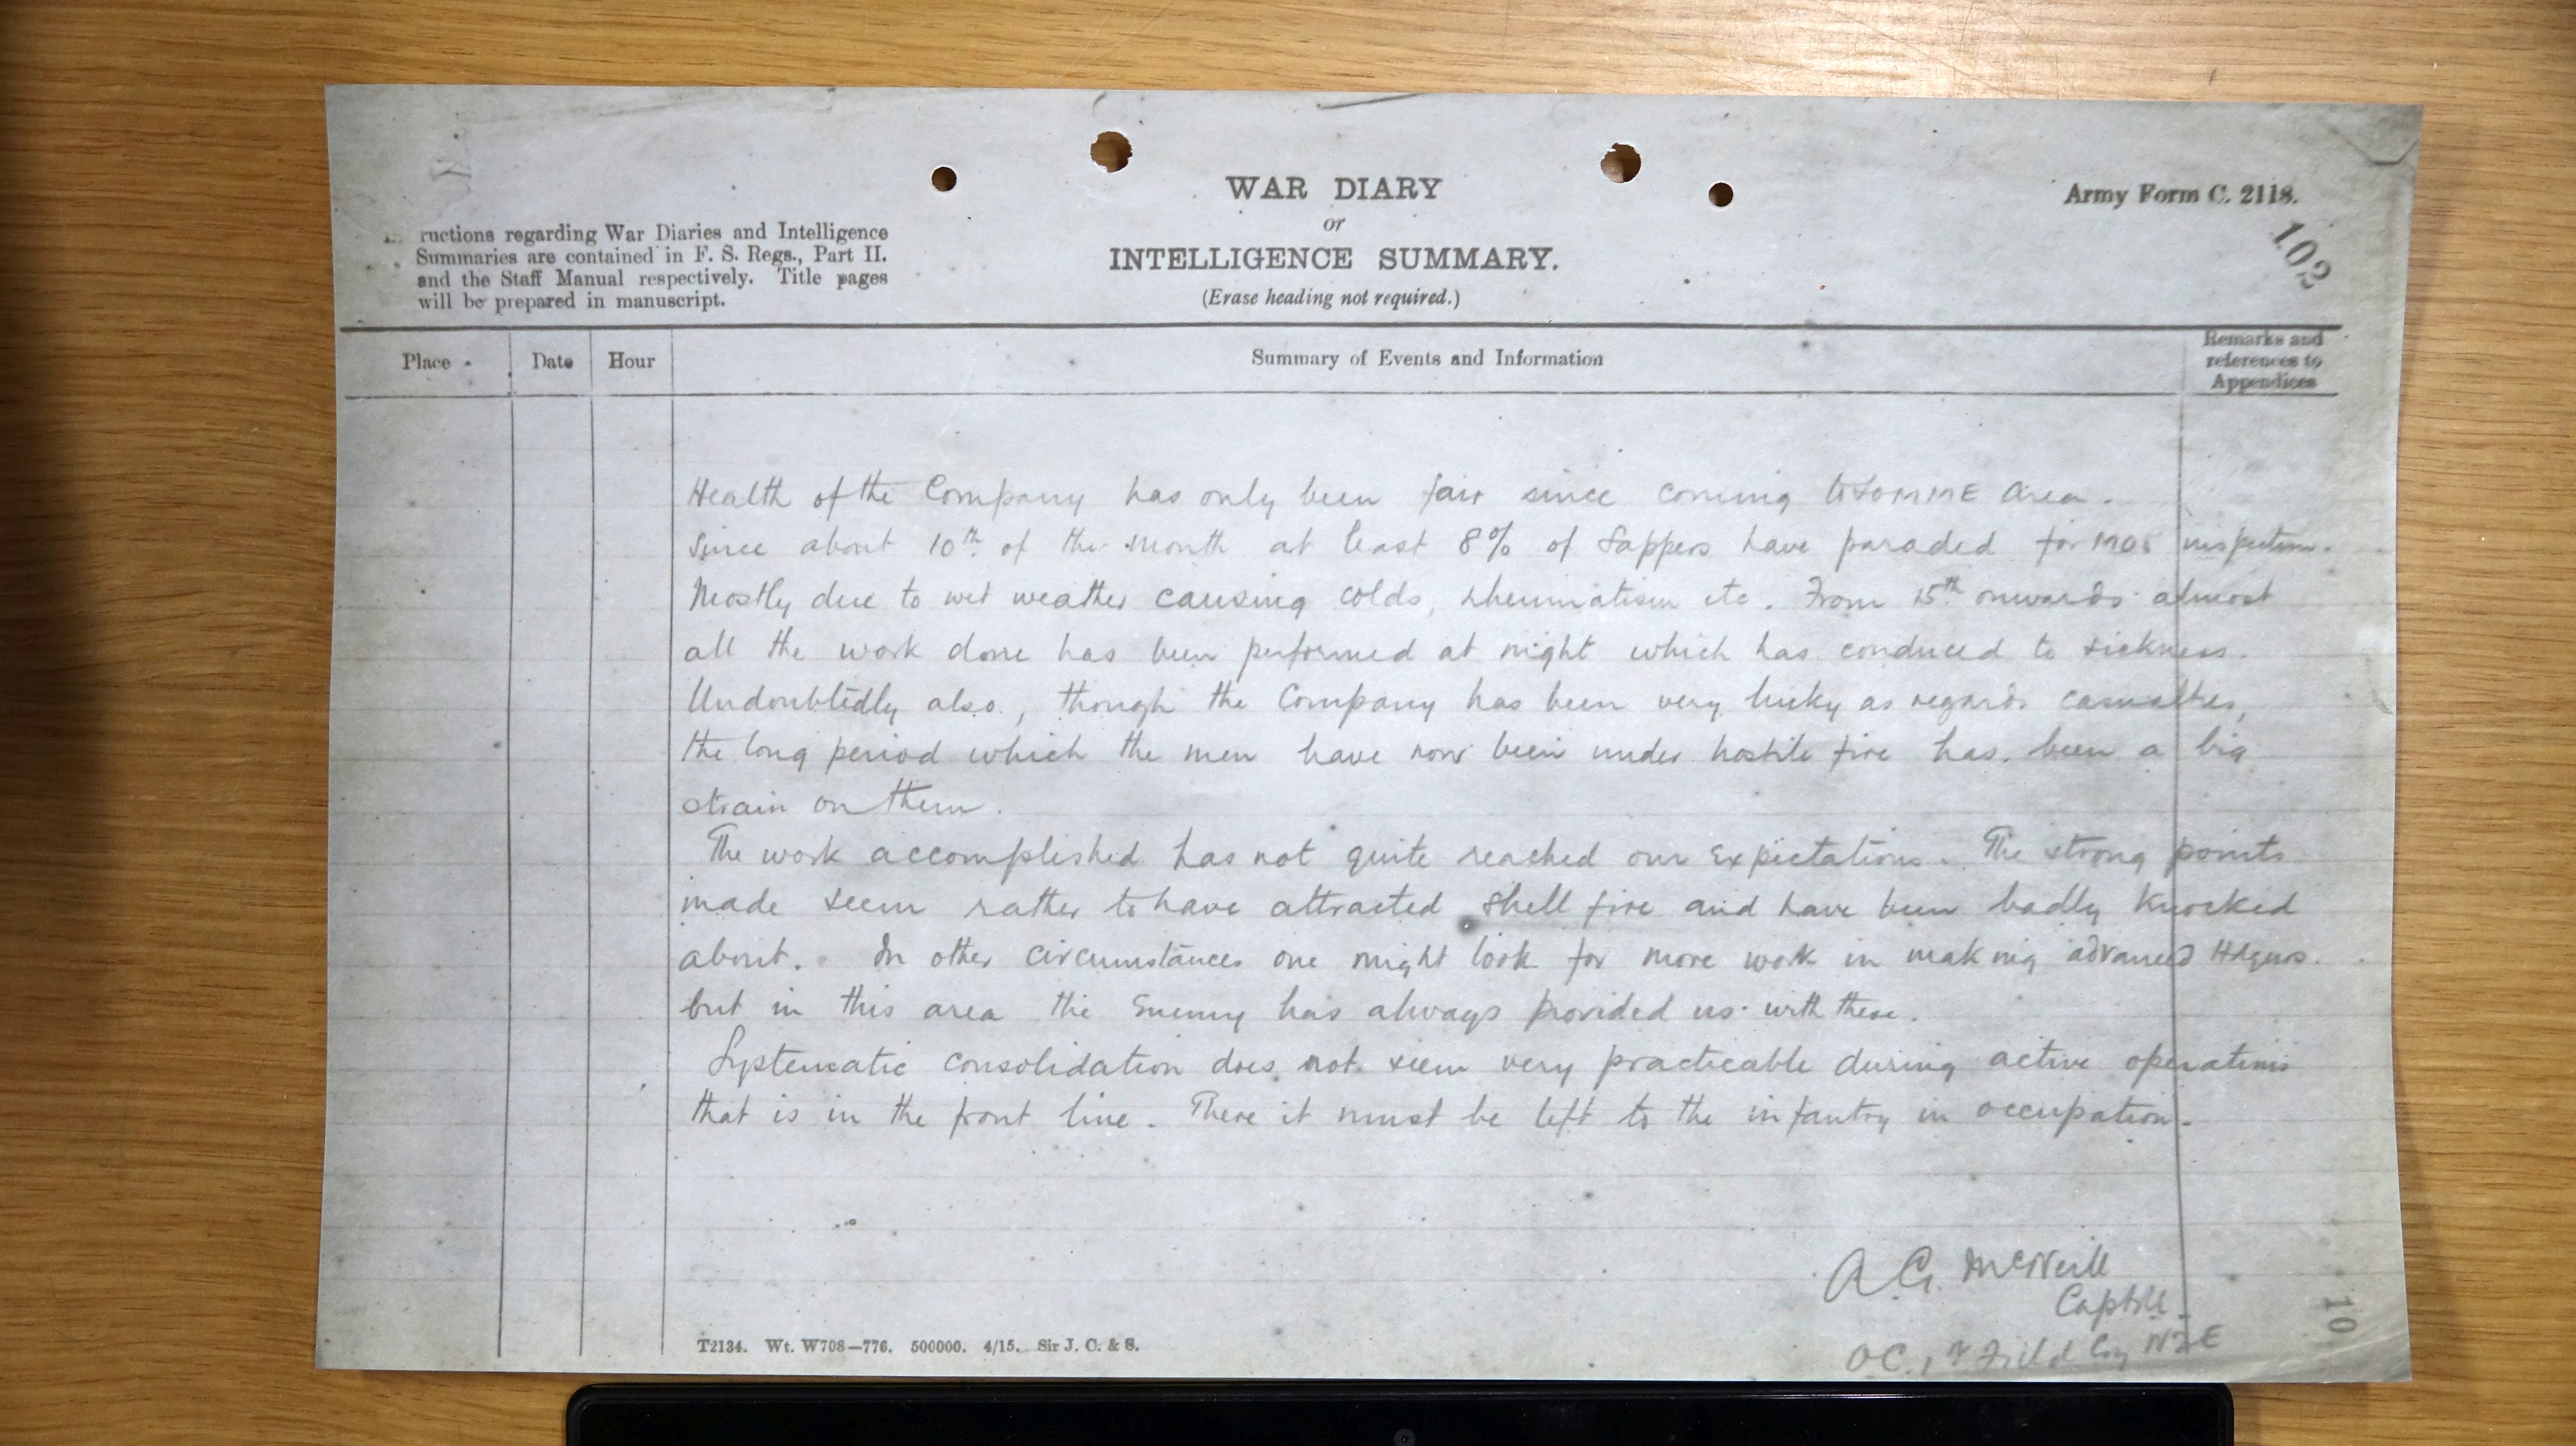 WAR DIARY
or
INTELLIGENCE SUMMARY.
(Erase heading not required.)
Army Form C. 2118.
102
ructions regarding War Diaries and Intelligence
Summaries are contained in F. S. Regs., Part II.
and the Staff Manual respectively. Title pages
will be prepared in manuscript.
Place Date Hour Summary of Events and Information Remarks and
references to
Appendices
Health of the Company has only been fair since coming to SOMME area.
Since about 10th of the month at least 8% of Sappers have paraded for inspection.
Mostly due to wet weather causing colds, rheumatism etc. From 15th onwards almost
all the work done has been performed at night which has conduced to sickness.
Undoubtedly also, though the Company has been very lucky as regards casualties,
the long period which the men have now been under hostile fire has been a big
strain on them.
The work accomplished has not quite reached our expectations. The strong points
made seem rather to have attracted shell fire and have been badly knocked
about. In other circumstances one might look for more work in making advanced Hdqrs.
but in this area the Enemy has always provided us with these.
Systematic consolidation does not seem very practicable during active operations
that is in the front line. There it must be left to the infantry in occupation.
A.G. McNeill
Capt
OC. Field Coy NZE
10
T2134. Wt. W708—776. 500000. 4/15. Sir J. C. & S.